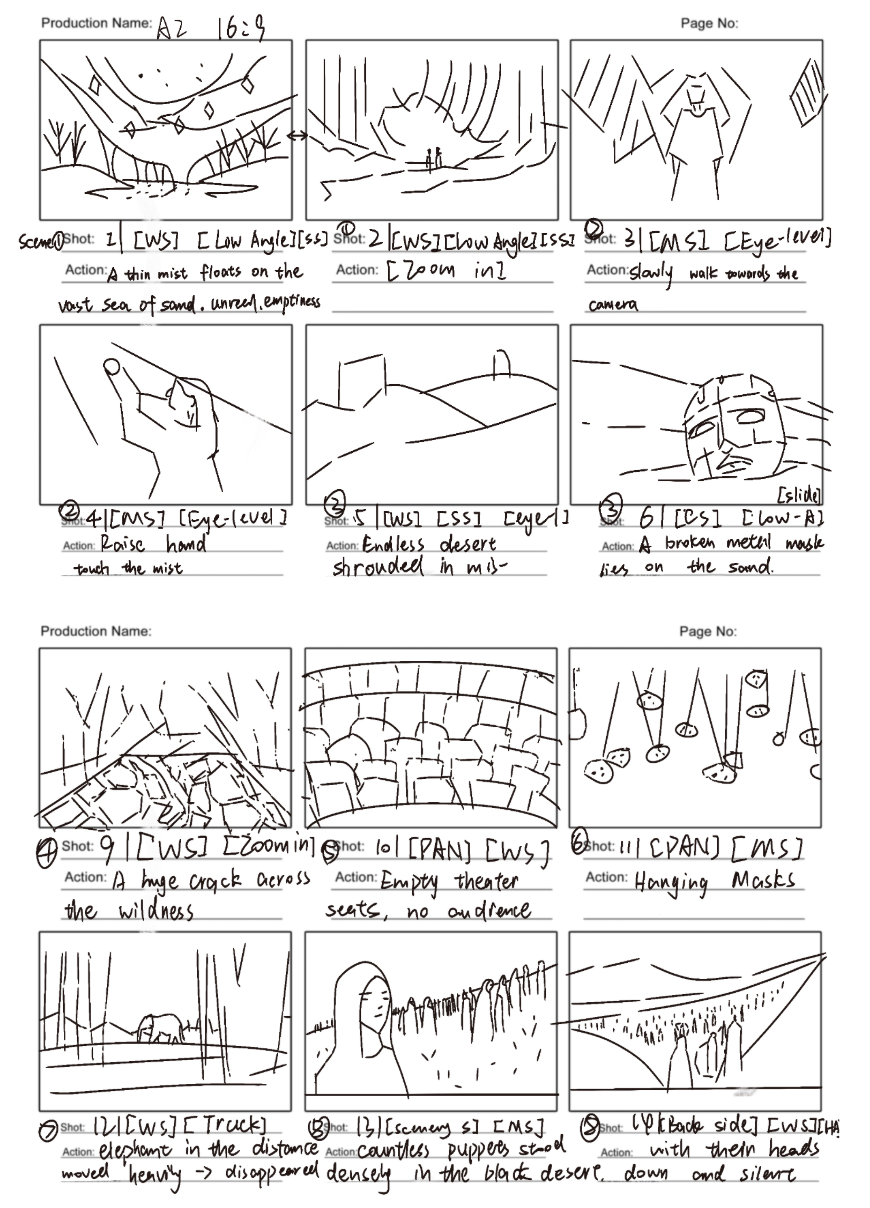 Production Name: A2 16:9 Page No:
Scene① Shot: 1 | [WS] [Low Angle][SS]
Action: A thin mist floats on the
vast sea of sand. unreal. emptiness
① Shot: 2 | [WS][Low Angle][SS]
Action: [Zoom in]
② Shot: 3 | [MS] [Eye-level]
Action: slowly walk towards the
camera
② Shot: 4 | [MS] [Eye-level]
Action: Raise hand
touch the mist
③ Shot: 5 | [WS] [SS] [eye-l]
Action: Endless desert
shrouded in mis-
[slide]
③ Shot: 6 | [CS] [Low-A]
Action: A broken metal mask
lies on the sand.
Production Name: Page No:
④ Shot: 9 | [WS] [Zoom in]
Action: A huge crack across
the wildness
⑤ Shot: 10 | [PAN] [WS]
Action: Empty theater
seats, no audience
⑥ Shot: 11 | [PAN] [MS]
Action: Hanging Masks
⑦ Shot: 12 | [WS] [Track]
Action: elephant in the distance
moved heavily -> disappeared
⑧ Shot: 13 | [scenery s] [MS]
Action: Countless puppets stood
densely in the black desert.
⑧ Shot: 14 [Back side] [WS][HA
Action: with their heads
down and silent